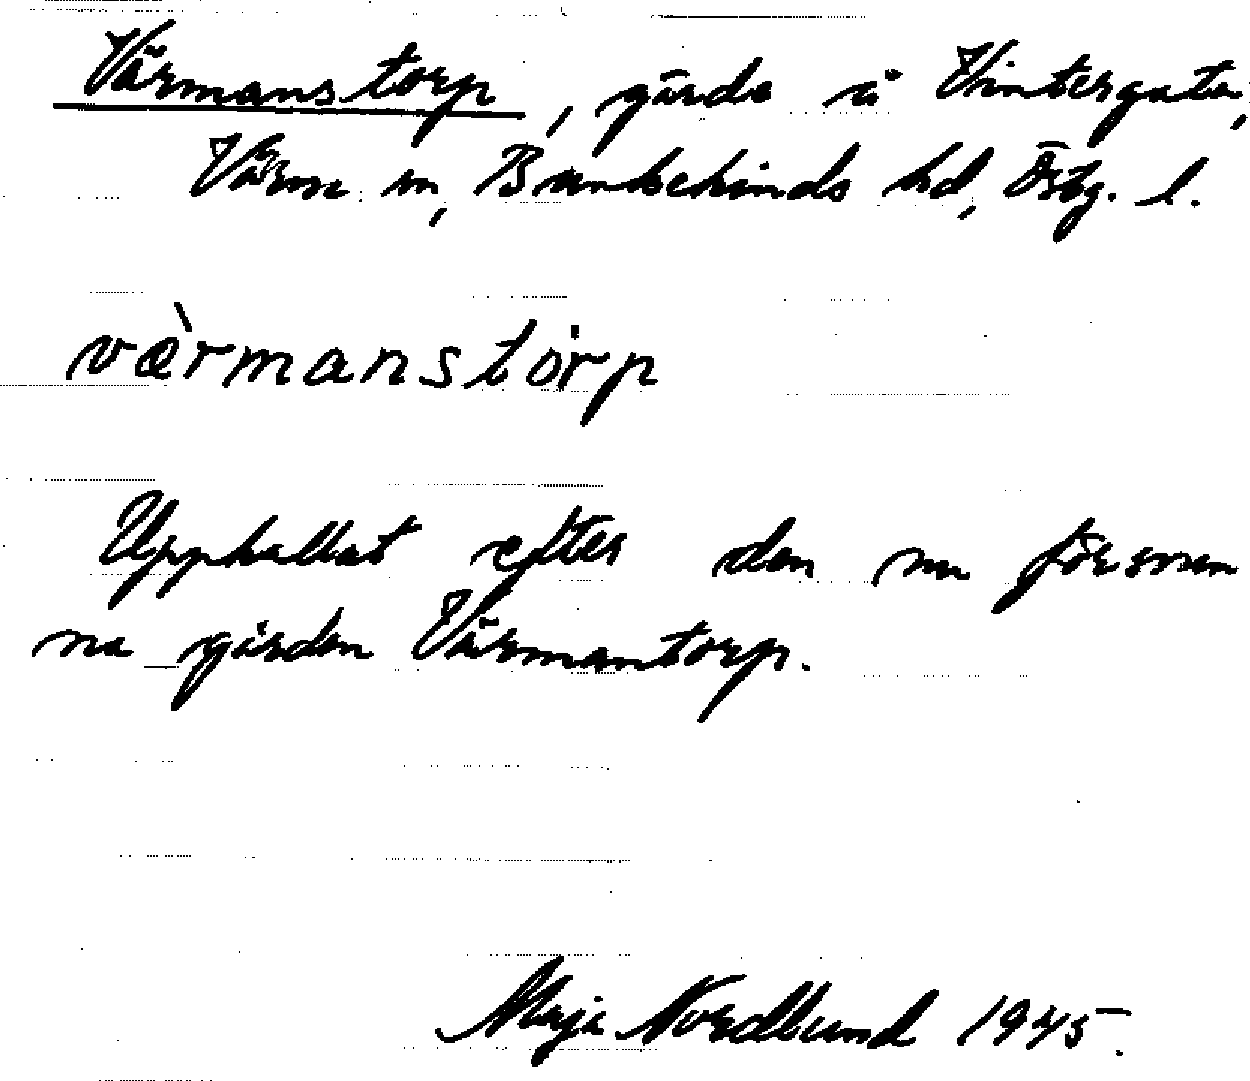 Värmanstorp, gärde å Vintergata,
Vårna sn, Bankekinds hd, Östg. l.
vær̀manstȯrp
Uppkallat efter den nu försvun
na gården Värmantorp.
Maja Nordlund 1945.